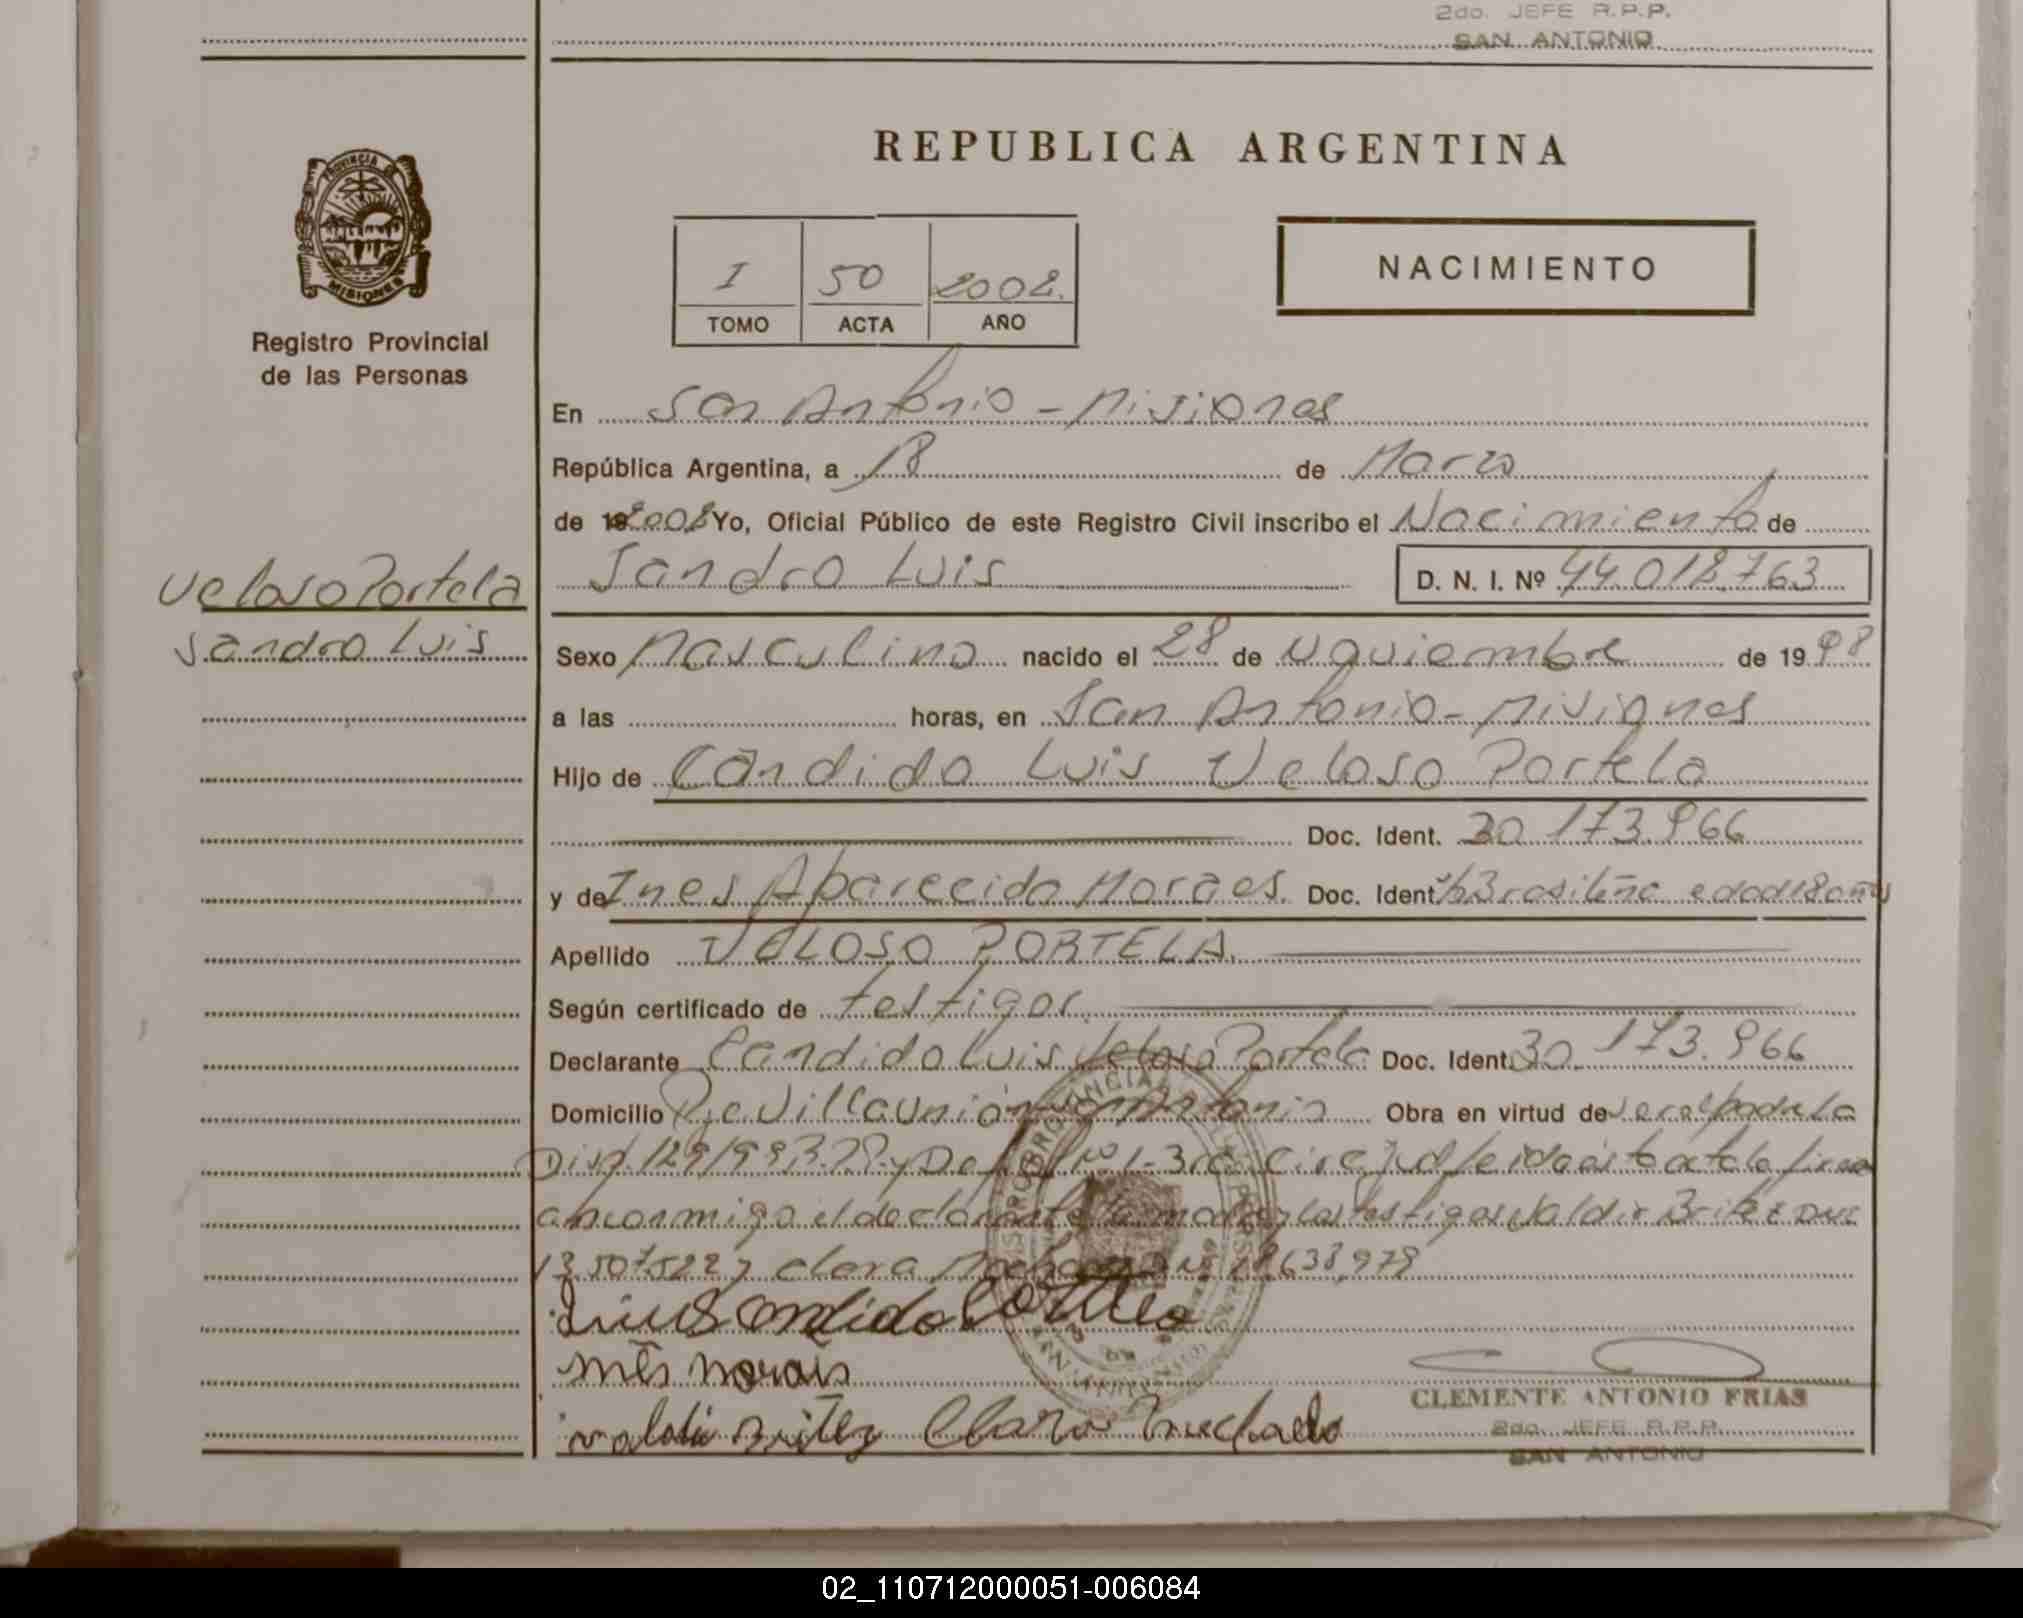 2do. JEFE R.P.P.
SAN ANTONIO
PROVINCIA DE
MISIONES
Registro Provincial
de las Personas
REPUBLICA ARGENTINA
I 50 2002.
TOMO ACTA AÑO
NACIMIENTO
En San Antonio - Misiones
República Argentina, a 18 de Marzo
de 19 2002 Yo, Oficial Público de este Registro Civil inscribo el Nacimiento de
Sandro Luis D. N. I. Nº 44.018.763
Veloso Portela
Sandro Luis
Sexo Masculino nacido el 28 de Noviembre de 1998
a las horas, en San Antonio - Misiones
Hijo de Candido Luis Veloso Portela
Doc. Ident. 30.173.966
y de Ines Aparecida Moraes. Doc. Ident Brasileña edad 18 años
Apellido VELOSO PORTELA.
Según certificado de testigos.
Declarante Candido Luis Veloso Portela Doc. Ident. 30.173.966
Domicilio Pje. Villa Unión San Antonio Obra en virtud de
Disp. 129/99 y Nº 1- 3ra. Circ. Jud. leida esta acta la firman
con migo el declarante la madre y los testigos Valdir Britez DNI
13.507.522 y Clara Machado 18.638.979
Luis Candido Portela
Inês Morais
Valdir Britez Clara Machado
CLEMENTE ANTONIO FRIAS
2do. JEFE R.P.P.
SAN ANTONIO
02_110712000051-006084